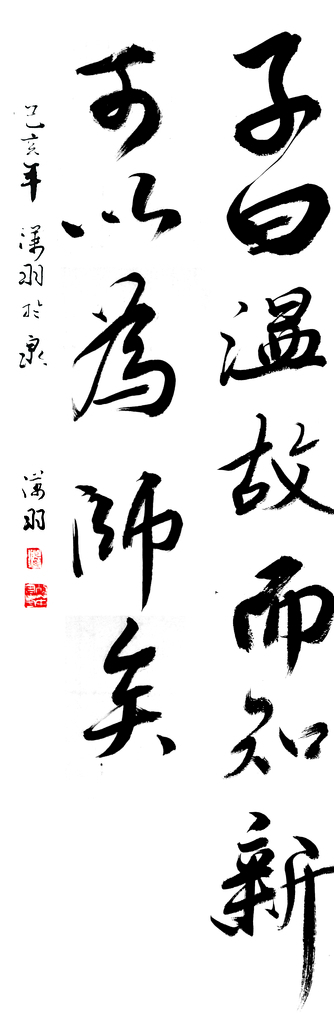 子曰温故而知新
可以為師矣
己亥年漢羽於泉
漢羽